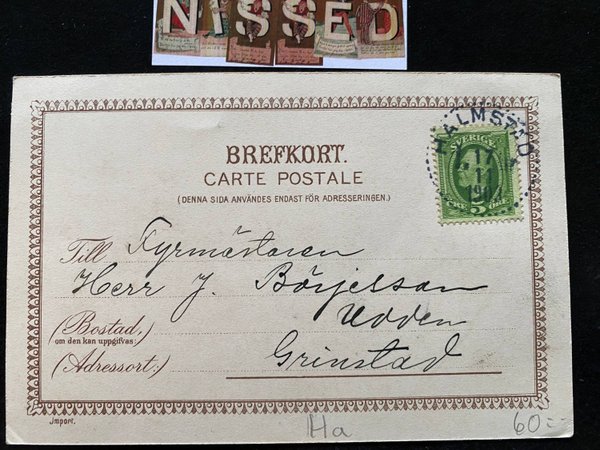 NISSED
BREFKORT.
CARTE POSTALE
(DENNA SIDA ANVÄNDES ENDAST FÖR ADRESSERINGEN.)
HALMSTAD
17
11
SVERIGE
5
Till Fyrmästaren
Herr J. Börjelsson
(Bostad,)
om den kan uppgifvas:
Udden
(Adressort:)
Grinstad
Import.
Ha
60:-